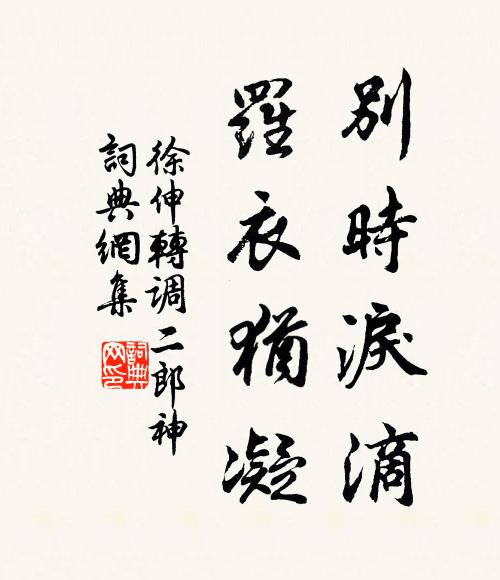 別時淚滴
羅衣猶凝
徐伸轉调二郎神
詞典網集
詞典网印